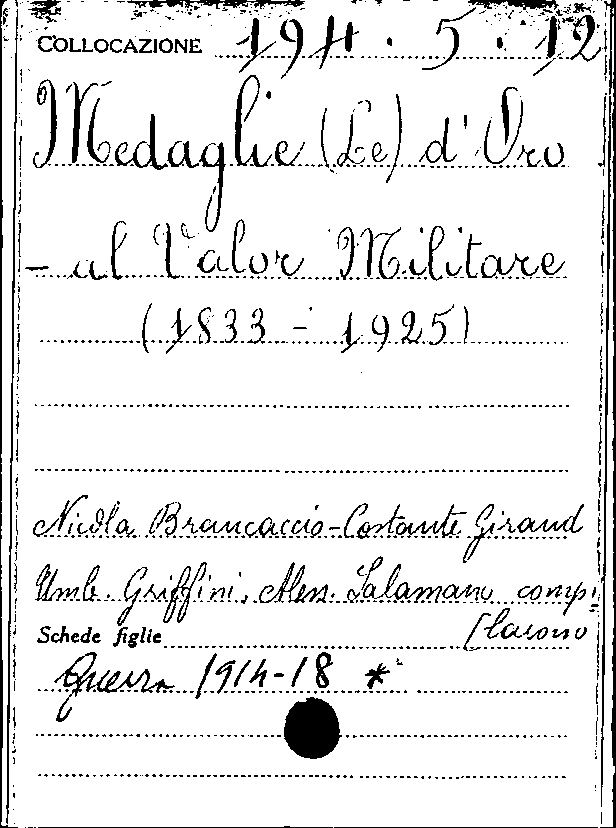 COLLOCAZIONE 194 . 5 . 12
Medaglie (Le) d'Oro
- al Valor Militare
(1833 - 1925)
Nicola Brancaccio-Costante Giraud
Umb. Griffini, Aless. Salamano compi
Schede figlie [larono
Guerra 1914-18 *